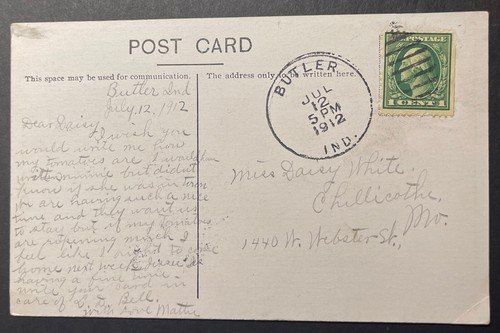 POST CARD
This space may be used for communication.
The address only to be written here.
Butler Ind
July, 12, 1912
Dear Daisy
I wish you
would write me how
my tomatoes are I would
minnie but didnt
know if she was in town
we are having such a nice
time and they want us
to stay but if my tomatoes
are ripening much I
feel like I ought to come
home next week Jessie is
having a fine time
write your card in
care of S. D. Bell.
with love Mattie
BUTLER
JUL
12
5 PM
1912
IND.
U.S. POSTAGE
1 CENT 1
Miss Daisy White,
Chillicothe,
Mo.
1440 W. Webster St.,